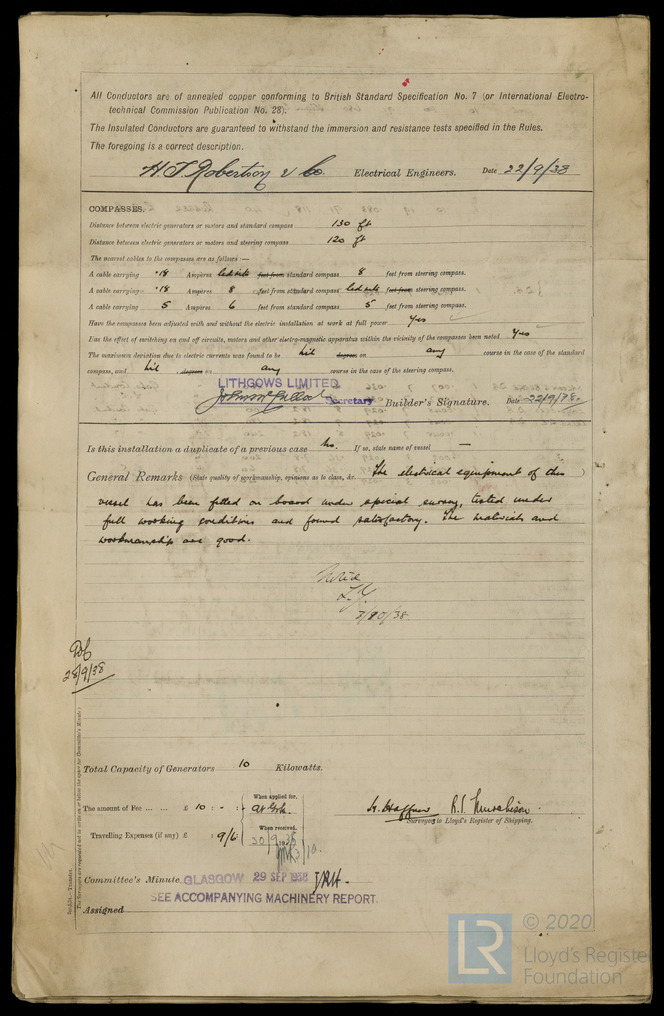 All Conductors are of annealed copper conforming to British Standard Specification No. 7 (or International Electro-
technical Commission Publication No. 28).
The Insulated Conductors are guaranteed to withstand the immersion and resistance tests specified in the Rules.
The foregoing is a correct description.
H. T. Robertson & Co. Electrical Engineers. Date 22/9/38
COMPASSES.
Distance between electric generators or motors and standard compass 130 ft
Distance between electric generators or motors and steering compass 120 ft
The nearest cables to the compasses are as follows:—
A cable carrying .18 Ampères led into feet from standard compass 8 feet from steering compass.
A cable carrying .18 Ampères 8 feet from standard compass led into feet from steering compass.
A cable carrying 5 Ampères 6 feet from standard compass 5 feet from steering compass.
Have the compasses been adjusted with and without the electric installation at work at full power Yes
Has the effect of switching on and off circuits, motors and other electro-magnetic apparatus within the vicinity of the compasses been noted Yes
The maximum deviation due to electric currents was found to be Nil degrees on any course in the case of the standard
compass, and Nil degrees on any course in the case of the steering compass.
LITHGOWS LIMITED
Secretary Builder's Signature. Date 22/9/38.
Is this installation a duplicate of a previous case No. If so, state name of vessel —
General Remarks (State quality of workmanship, opinions as to class, &c. The electrical equipment of this )
vessel has been fitted on board under special survey, tested under
full working conditions and found satisfactory. The materials and
workmanship are good.
Noted
28/9/38
Total Capacity of Generators 10 Kilowatts.
The amount of Fee ... ... £ 10 : - :
When applied for,
Travelling Expenses (if any) £ : 9/6
When received,
30/9/1938
Surveyors to Lloyd's Register of Shipping.
Committee's Minute GLASGOW 29 SEP 1938
SEE ACCOMPANYING MACHINERY REPORT.
Assigned
© 2020
LR
Lloyd's Registe
Foundation